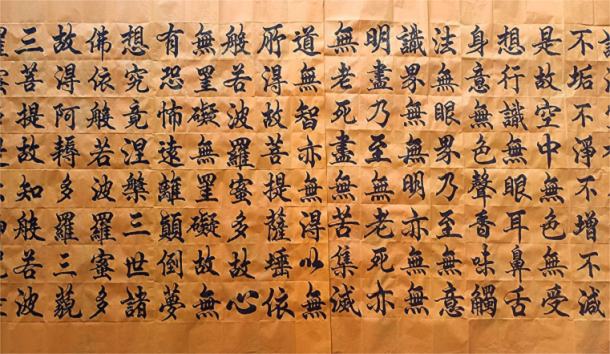 不垢不淨不增不減
是故空中無色無受
想行識無眼耳鼻舌
身意無色聲香味觸
法無眼界乃至無意
識界無無明亦無無
明盡乃至無老死亦
無老死盡無苦集滅
道無智亦無得以無
所得故菩提薩埵依
般若波羅蜜多故心
無罣礙無罣礙故無
有恐怖遠離顛倒夢
想究竟涅槃三世諸
佛依般若波羅蜜多
故得阿耨多羅三藐
三菩提故知般若波